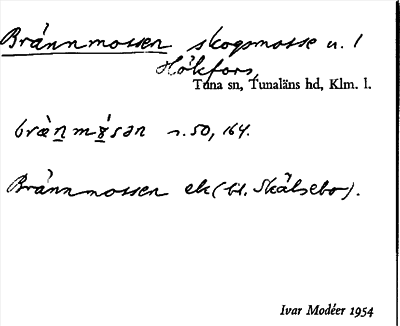 Brännmossen skogsmosse u. /
Hökfors,
Tuna sn, Tunaläns hd, Klm. l.
brànmɷ́sən r. 50, 164.
Brännmossen ek (bl. Skälsebo).
Ivar Modéer 1954